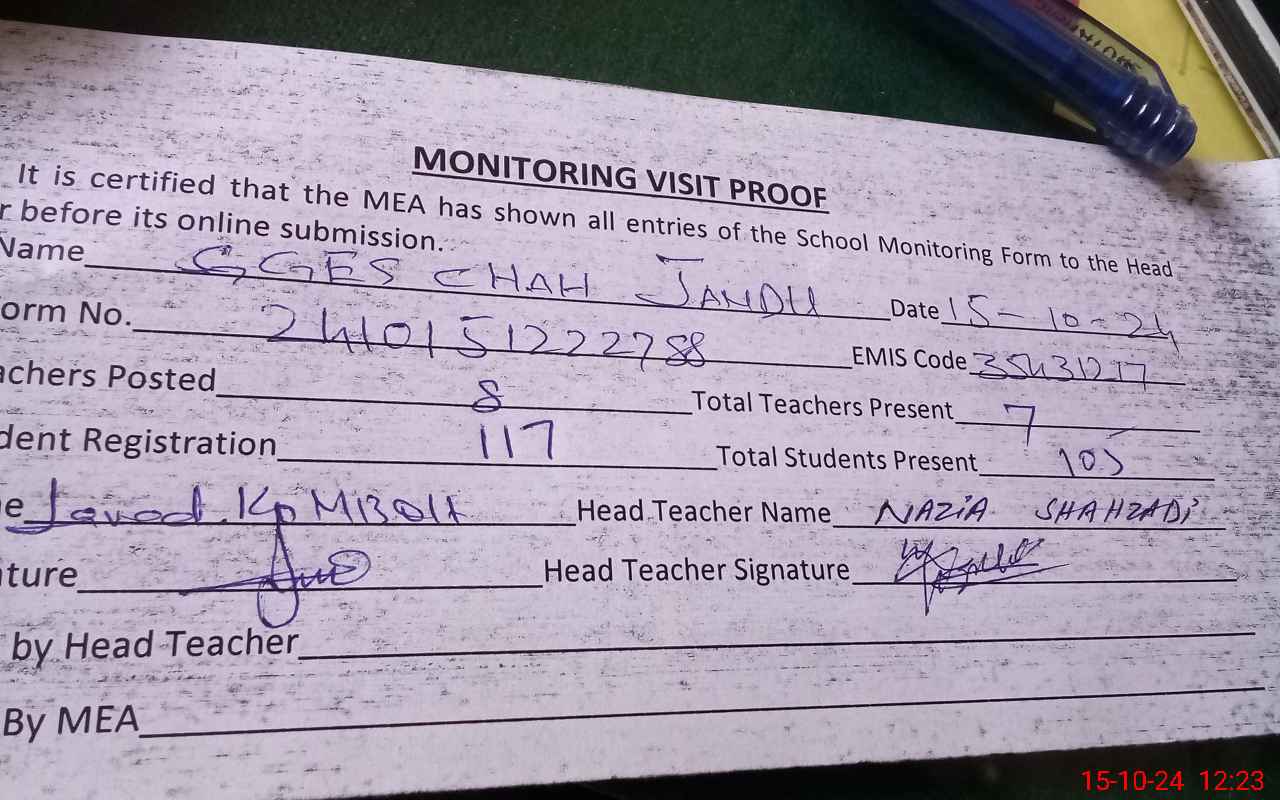 MONITORING VISIT PROOF
It is certified that the MEA has shown all entries of the School Monitoring Form to the Head
r before its online submission.
Name GGES CHAH JANDU Date 15-10-24
orm No. 2410151222788 EMIS Code
achers Posted 8 Total Teachers Present 7
dent Registration 117 Total Students Present 105
e Head Teacher Name NAZIA SHAHZADI
ture Head Teacher Signature
by Head Teacher
By MEA
15-10-24 12:23